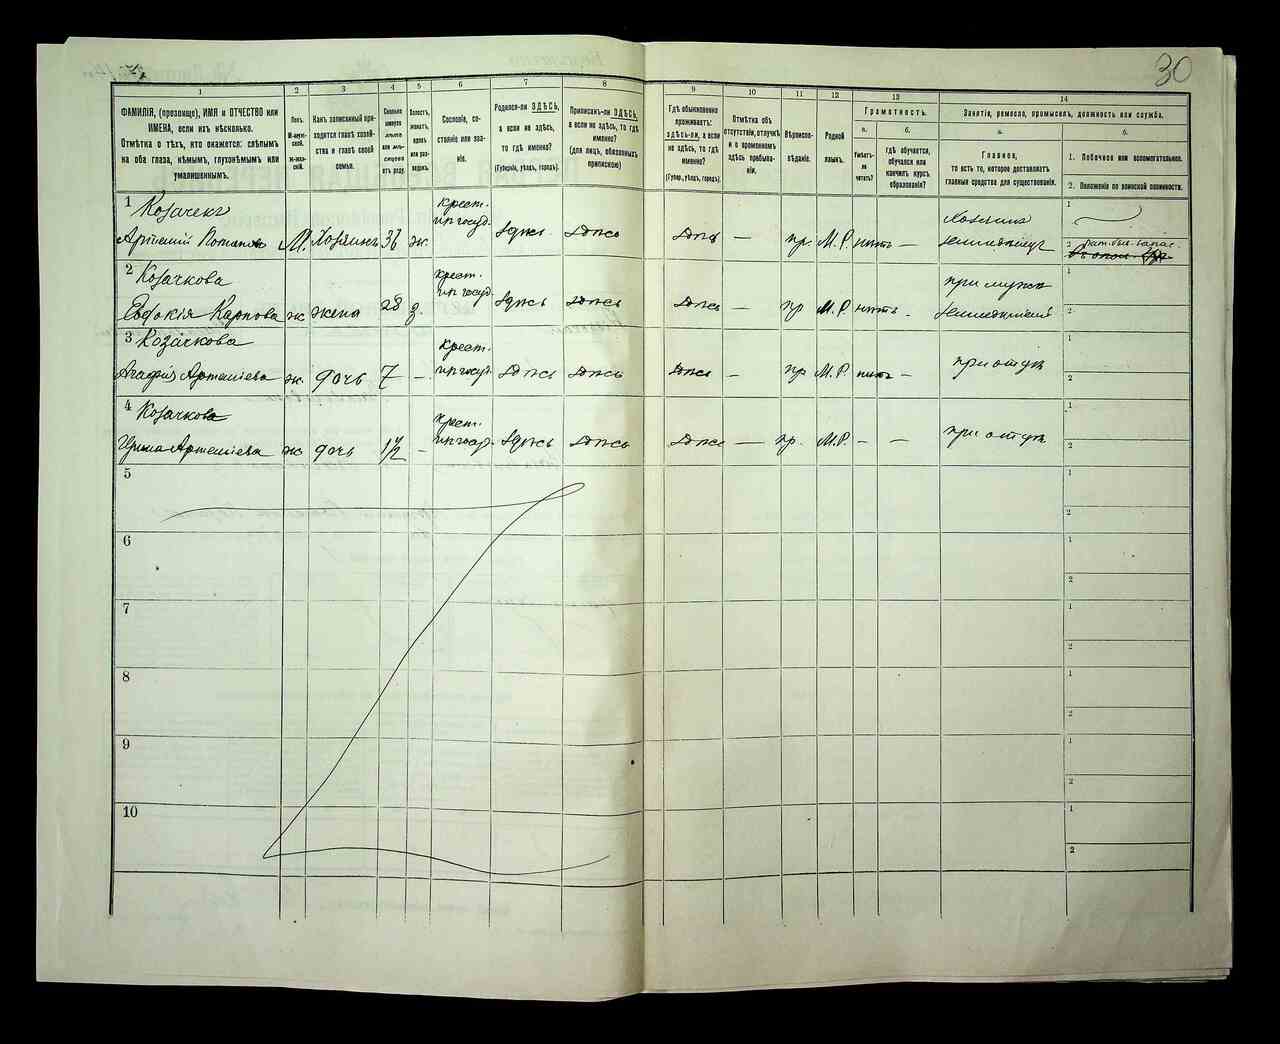 30
1 2 3 4 5 6 7 8 9 10 11 12 13 14
ФАМИЛІЯ, (прозвище), ИМЯ и ОТЧЕСТВО или
ИМЕНА, если ихъ нѣсколько.
Отмѣтка о тѣхъ, кто окажется: слѣпымъ
на оба глаза, нѣмымъ, глухонѣмымъ или
умалишеннымъ.
Полъ.
М-мужской.
Ж-женскій.
Какъ записанный приходится главѣ хозяйства и главѣ своей семьи.
Сколько минуло лѣтъ или мѣсяцевъ отъ роду.
Холостъ, женатъ, вдовъ или разведенъ.
Сословіе, состояніе или званіе.
Родился-ли ЗДѢСЬ,
а если не здѣсь,
то гдѣ именно?
(Губернія, уѣздъ, городъ).
Приписанъ-ли ЗДѢСЬ,
а если не здѣсь, то гдѣ
именно?
(для лицъ, обязанныхъ
припискою)
Гдѣ обыкновенно
проживаетъ:
здѣсь-ли, а если
не здѣсь, то гдѣ
именно?
(Губер., уѣздъ, городъ).
Отмѣтка объ
отсутствіи, отлучкѣ
и о временномъ
здѣсь пребываніи.
Вѣроисповѣданіе.
Родной
языкъ.
Грамотность.
а. б.
Умѣетъ-ли
читать?
гдѣ обучается,
обучался или
кончилъ курсъ
образованія?
Занятіе, ремесло, промыселъ, должность или служба.
а. б.
Главное,
то есть то, которое доставляетъ
главныя средства для существованія.
1. Побочное или вспомогательное.
2. Положеніе по воинской повинности.
1 Козачекъ
Артемій М. Хозяинъ 36 ж. Крест. Здѣсь Здѣсь Здѣсь — пр. М.Р. нѣтъ —
1
2
2 Козачкова
Евдокія Карпова ж жена 28 З. Крест. Здѣсь Здѣсь Здѣсь — пр М.Р. нѣтъ - при мужѣ
1
2
3 Козачкова
Агафія Артеміева ж. дочь 7 — Крест. Здѣсь Здѣсь Здѣсь — пр М.Р. нѣтъ — при отцѣ
1
2
4 Козачкова
Артеміева ж дочь 1/2 — Крест. Здѣсь Здѣсь Здѣсь — пр. М.Р. — — при отцѣ
1
2
5
1
2
6
1
2
7
1
2
8
1
2
9
1
2
10
1
2